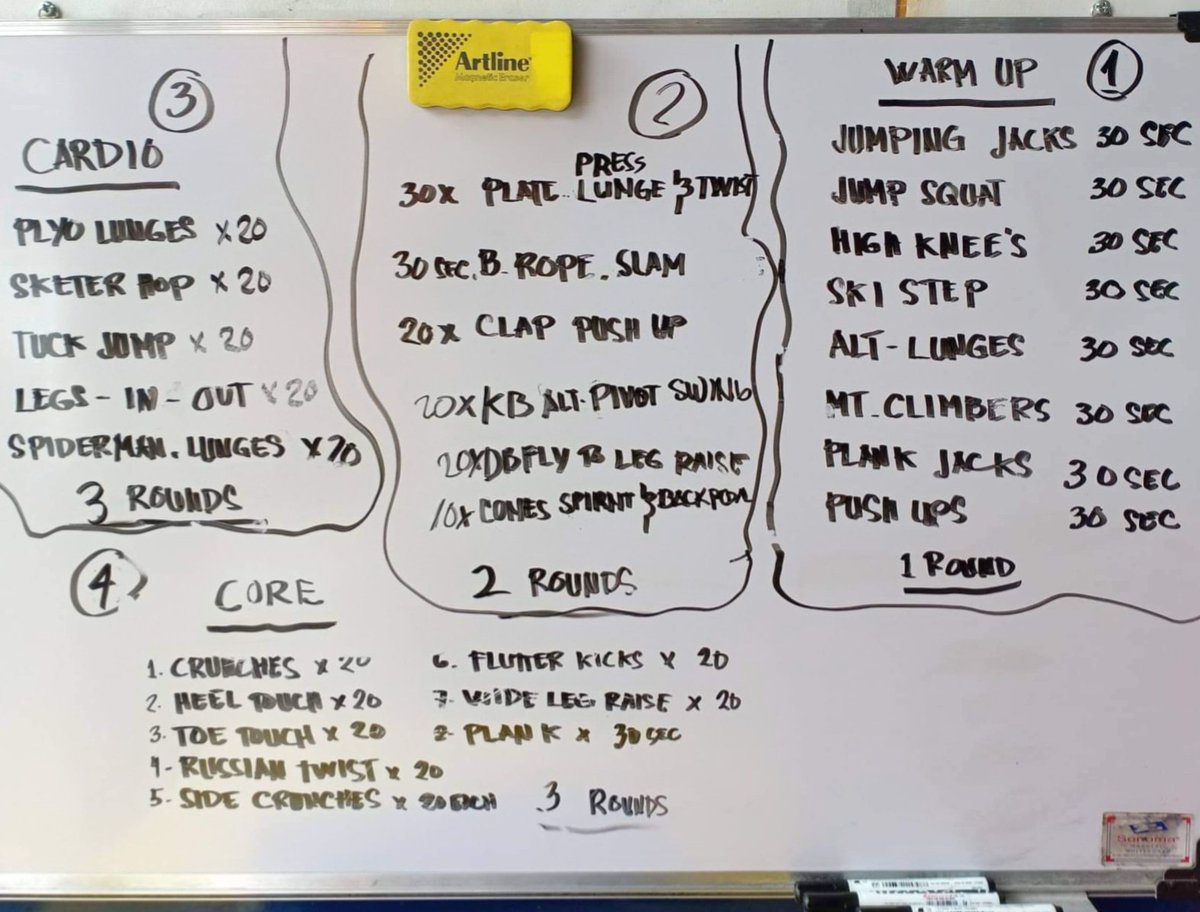 Artline
Magnetic Eraser
WARM UP 1
JUMPING JACKS 30 SEC
JUMP SQUAT 30 SEC
HIGH KNEE'S 30 SEC
SKI STEP 30 SEC
ALT-LUNGES 30 SEC
MT-CLIMBERS 30 SEC
PLANK JACKS 30 SEC
PUSH UPS 30 SEC
1 ROUND
2
PRESS
30X PLATE LUNGE & TWIST
30 SEC. B-ROPE. SLAM
20X CLAP PUSH UP
20X KB ALT. PIVOT SWING
20X DB FLY TO LEG RAISE
10X CONES SPIRNT &
2 ROUNDS
3
CARDIO
PLYO LUNGES X 20
SKETER HOP X 20
TUCK JUMP X 20
LEGS-IN-OUT X 20
SPIDERMAN. LUNGES X 20
3 ROUNDS
4 CORE
1. CRUNCHES X 20
2. HEEL TOUCH X 20
3. TOE TOUCH X 20
4- RUSSIAN TWIST X 20
5- SIDE CRUNCHES X 20 EACH
6- FLUTTER KICKS X 20
7- WIDE LEG RAISE X 20
PLANK X 30 SEC
3 ROUNDS
Sonoma